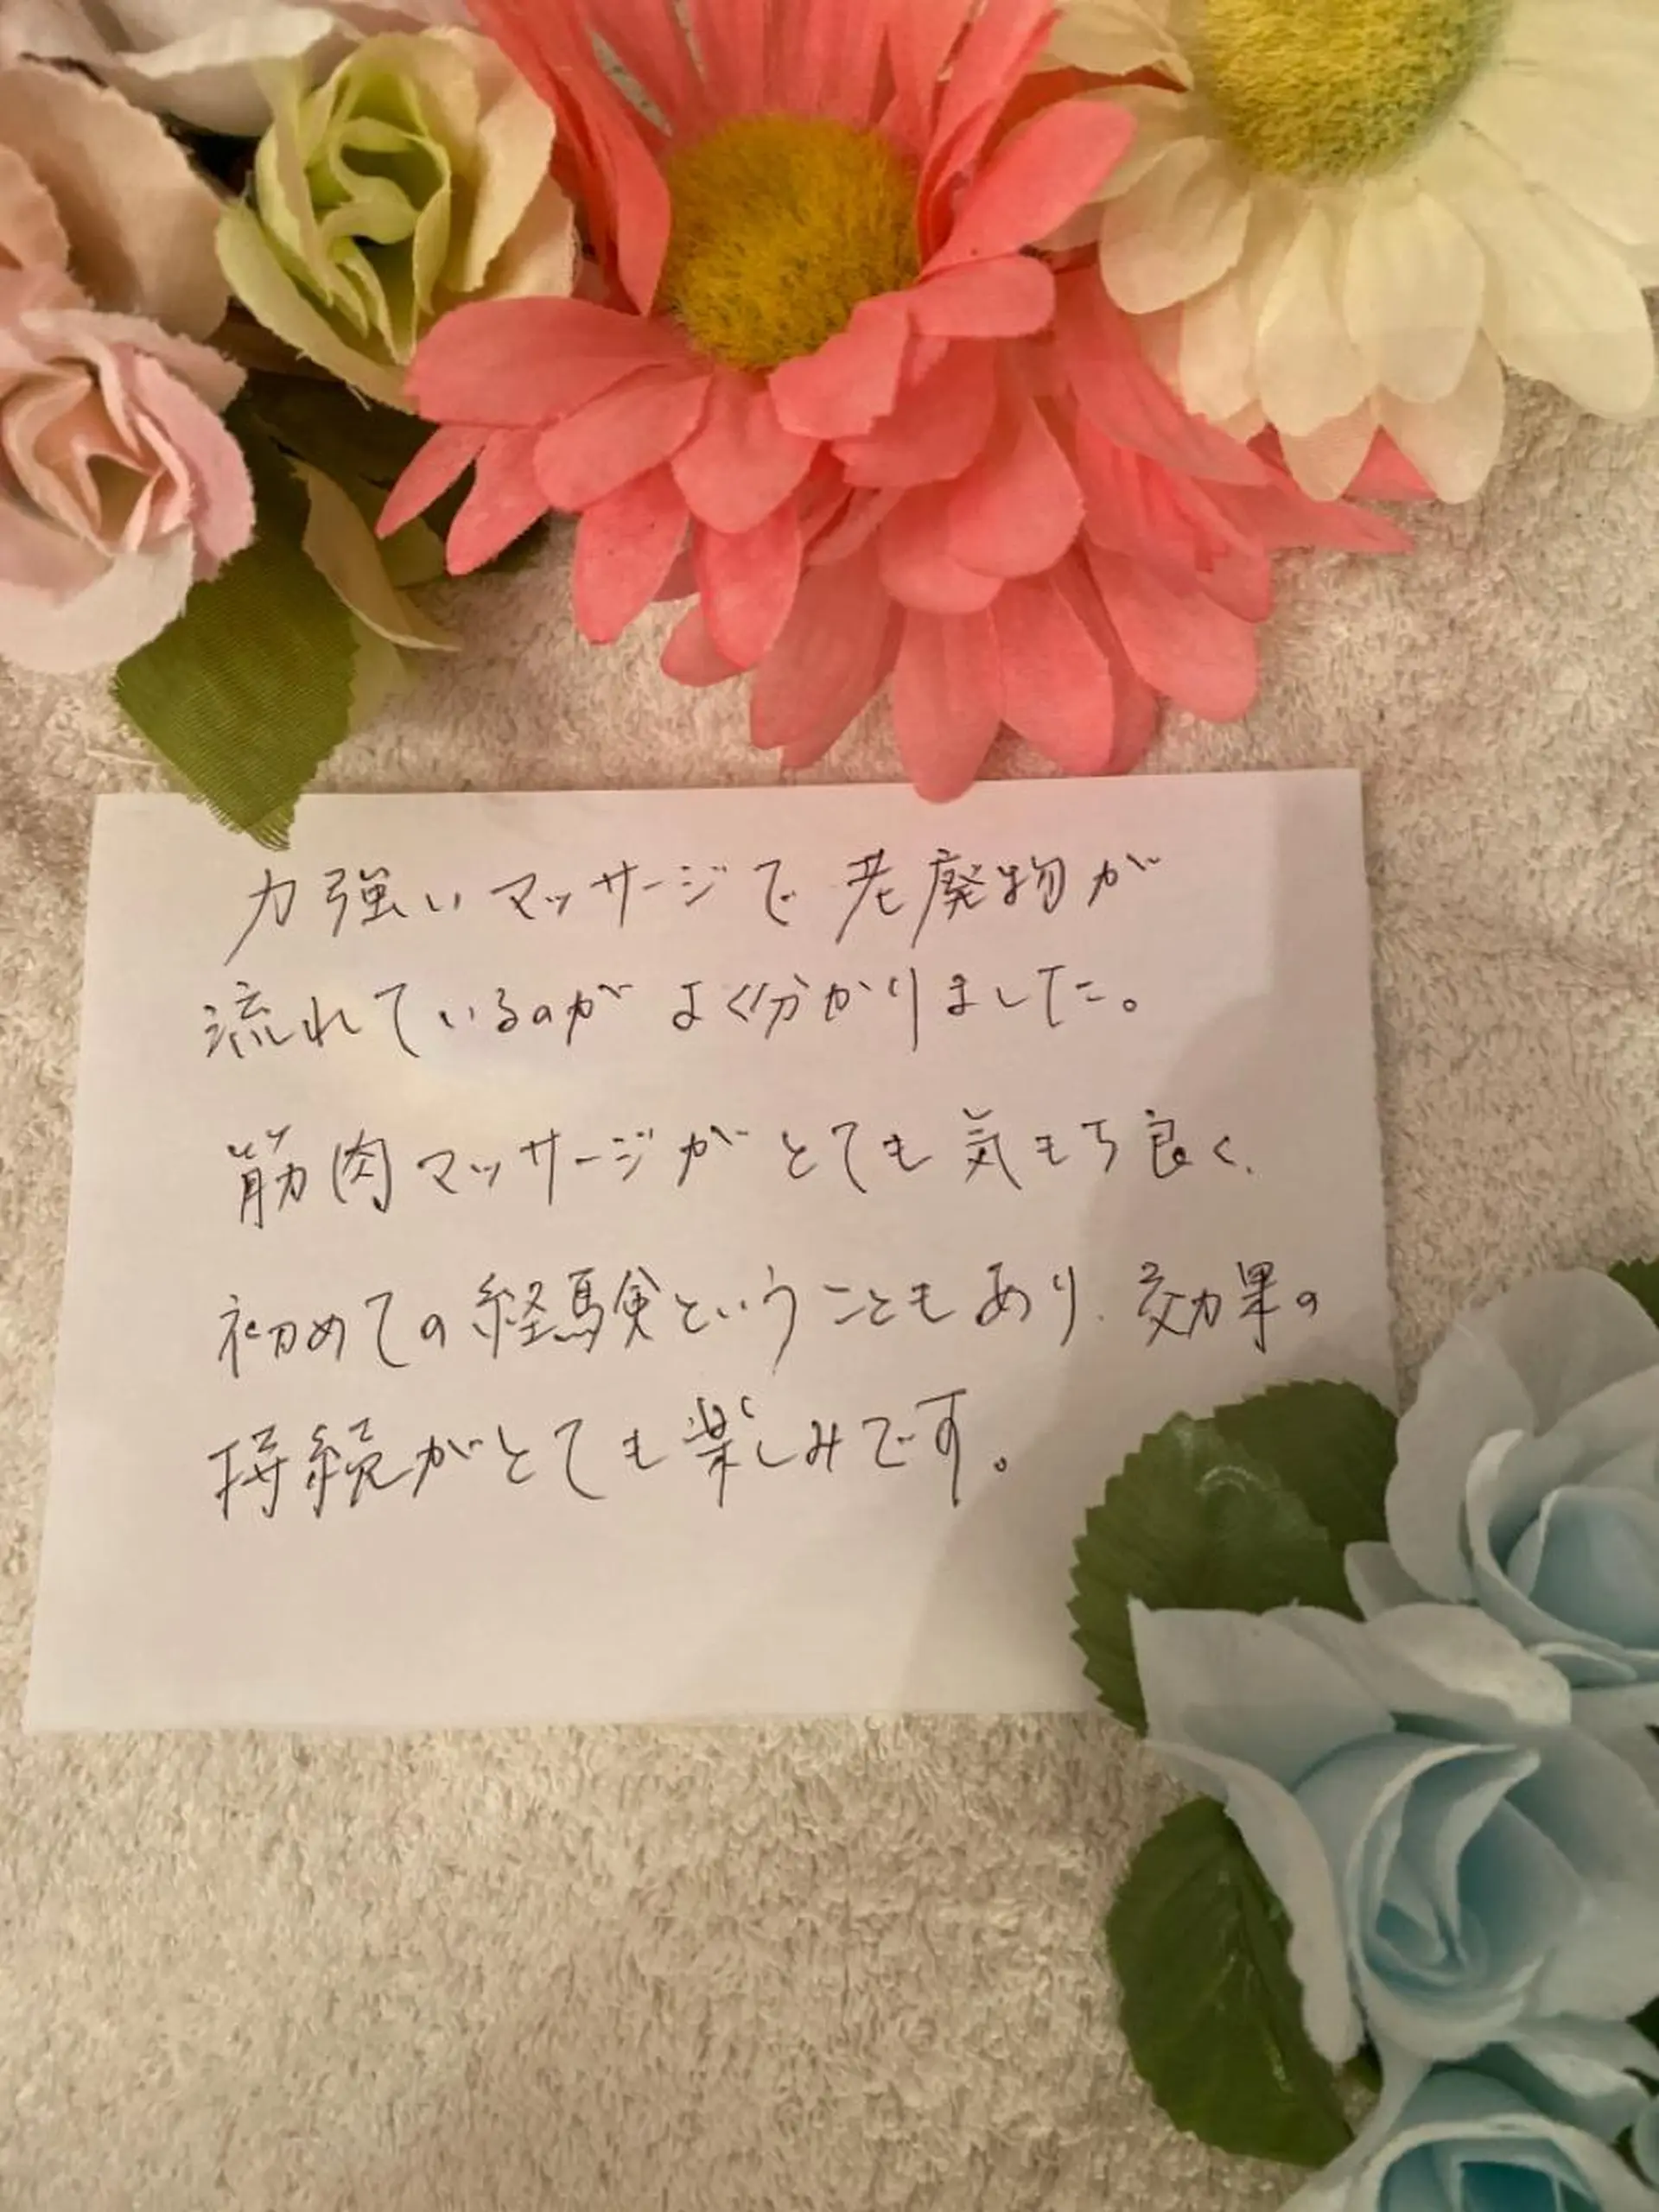 力強いマッサージで老廃物が
流れているのがよく分かりました。
筋肉マッサージがとても気もち良く、
初めての経験ということもあり、効果の
持続がとても楽しみです。